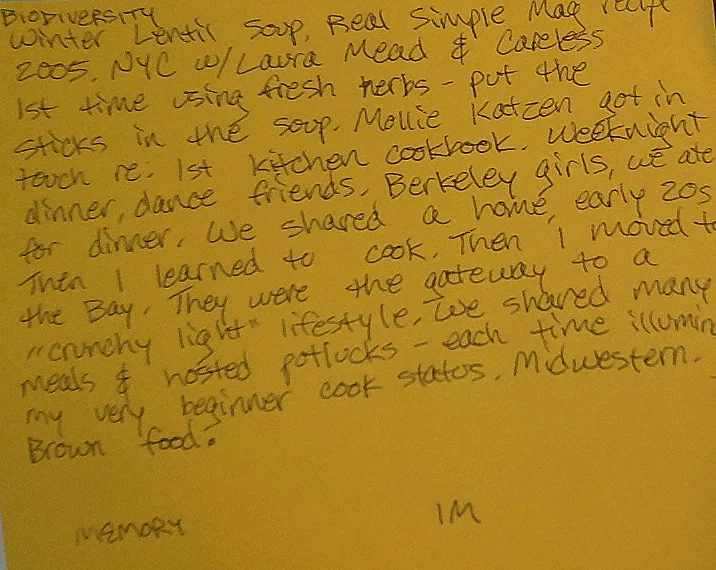 BIODIVERSITY
Winter Lentil Soup, Real Simple Mag recipe
2005. NYC w/ Laura Mead & Careless
1st time using fresh herbs - put the
sticks in the soup. Mollie Katzen got in
touch re: 1st kitchen cookbook. Weeknight
dinner, dance friends. Berkeley girls, we ate
for dinner. We shared a home, early 20s
Then I learned to cook. Then I moved to
the Bay. They were the gateway to a
"crunchy light" lifestyle. We shared many
meals & hosted potlucks - each time illumin
my very beginner cook status. Midwestern.
Brown food.
MEMORY
1M